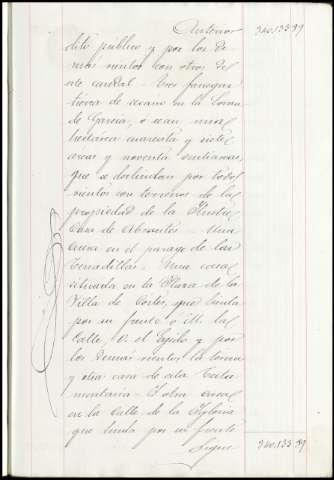 Anterior 340.133.99
dito público y por los de
mas vientos con otros de
este caudal. Tres fanegas
tierra de secano en la Loma
de Garcia, o sean una
hectárea cuarenta y siete
areas y noventa centiareas,
que se deslindan por todos
vientos con terrenos de la
propiedad de la Ilustre
Casa de Abrantes. Una
cueva en el parage de las
Una casa
situada en la Plaza de la
Villa de Cortes, que linda
por su frente o M. la
Calle, P. el Egido y por
los demas vientos la loma
y otra casa de esta Testa
mentaria. Y otra casa
en la Calle de la Yglesia
que linda por su frente
Sigue 340.133.99